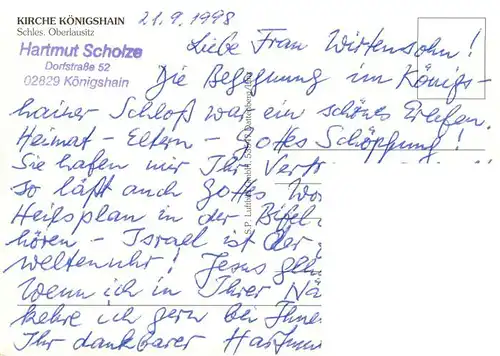 KIRCHE KÖNIGSHAIN
Schles. Oberlausitz
21.9.1998
Hartmut Scholze
Dorfstraße 52
02829 Königshain
Liebe Frau Wirtensohn!
Die Begegnung im Königs-
hainer Schloß war ein schönes Erleben.
Heimat - Eltern - Gottes Schöpfung!
Sie haben mir Ihr Vertr
so läßt auch Gottes Wo
Heilsplan in der Bibel
hören - Israel ist der
weltenuhr! Jesus
Wenn ich in Ihrer Nä
kehre ich gern bei Ihne
Ihr dankbarer Hartmu